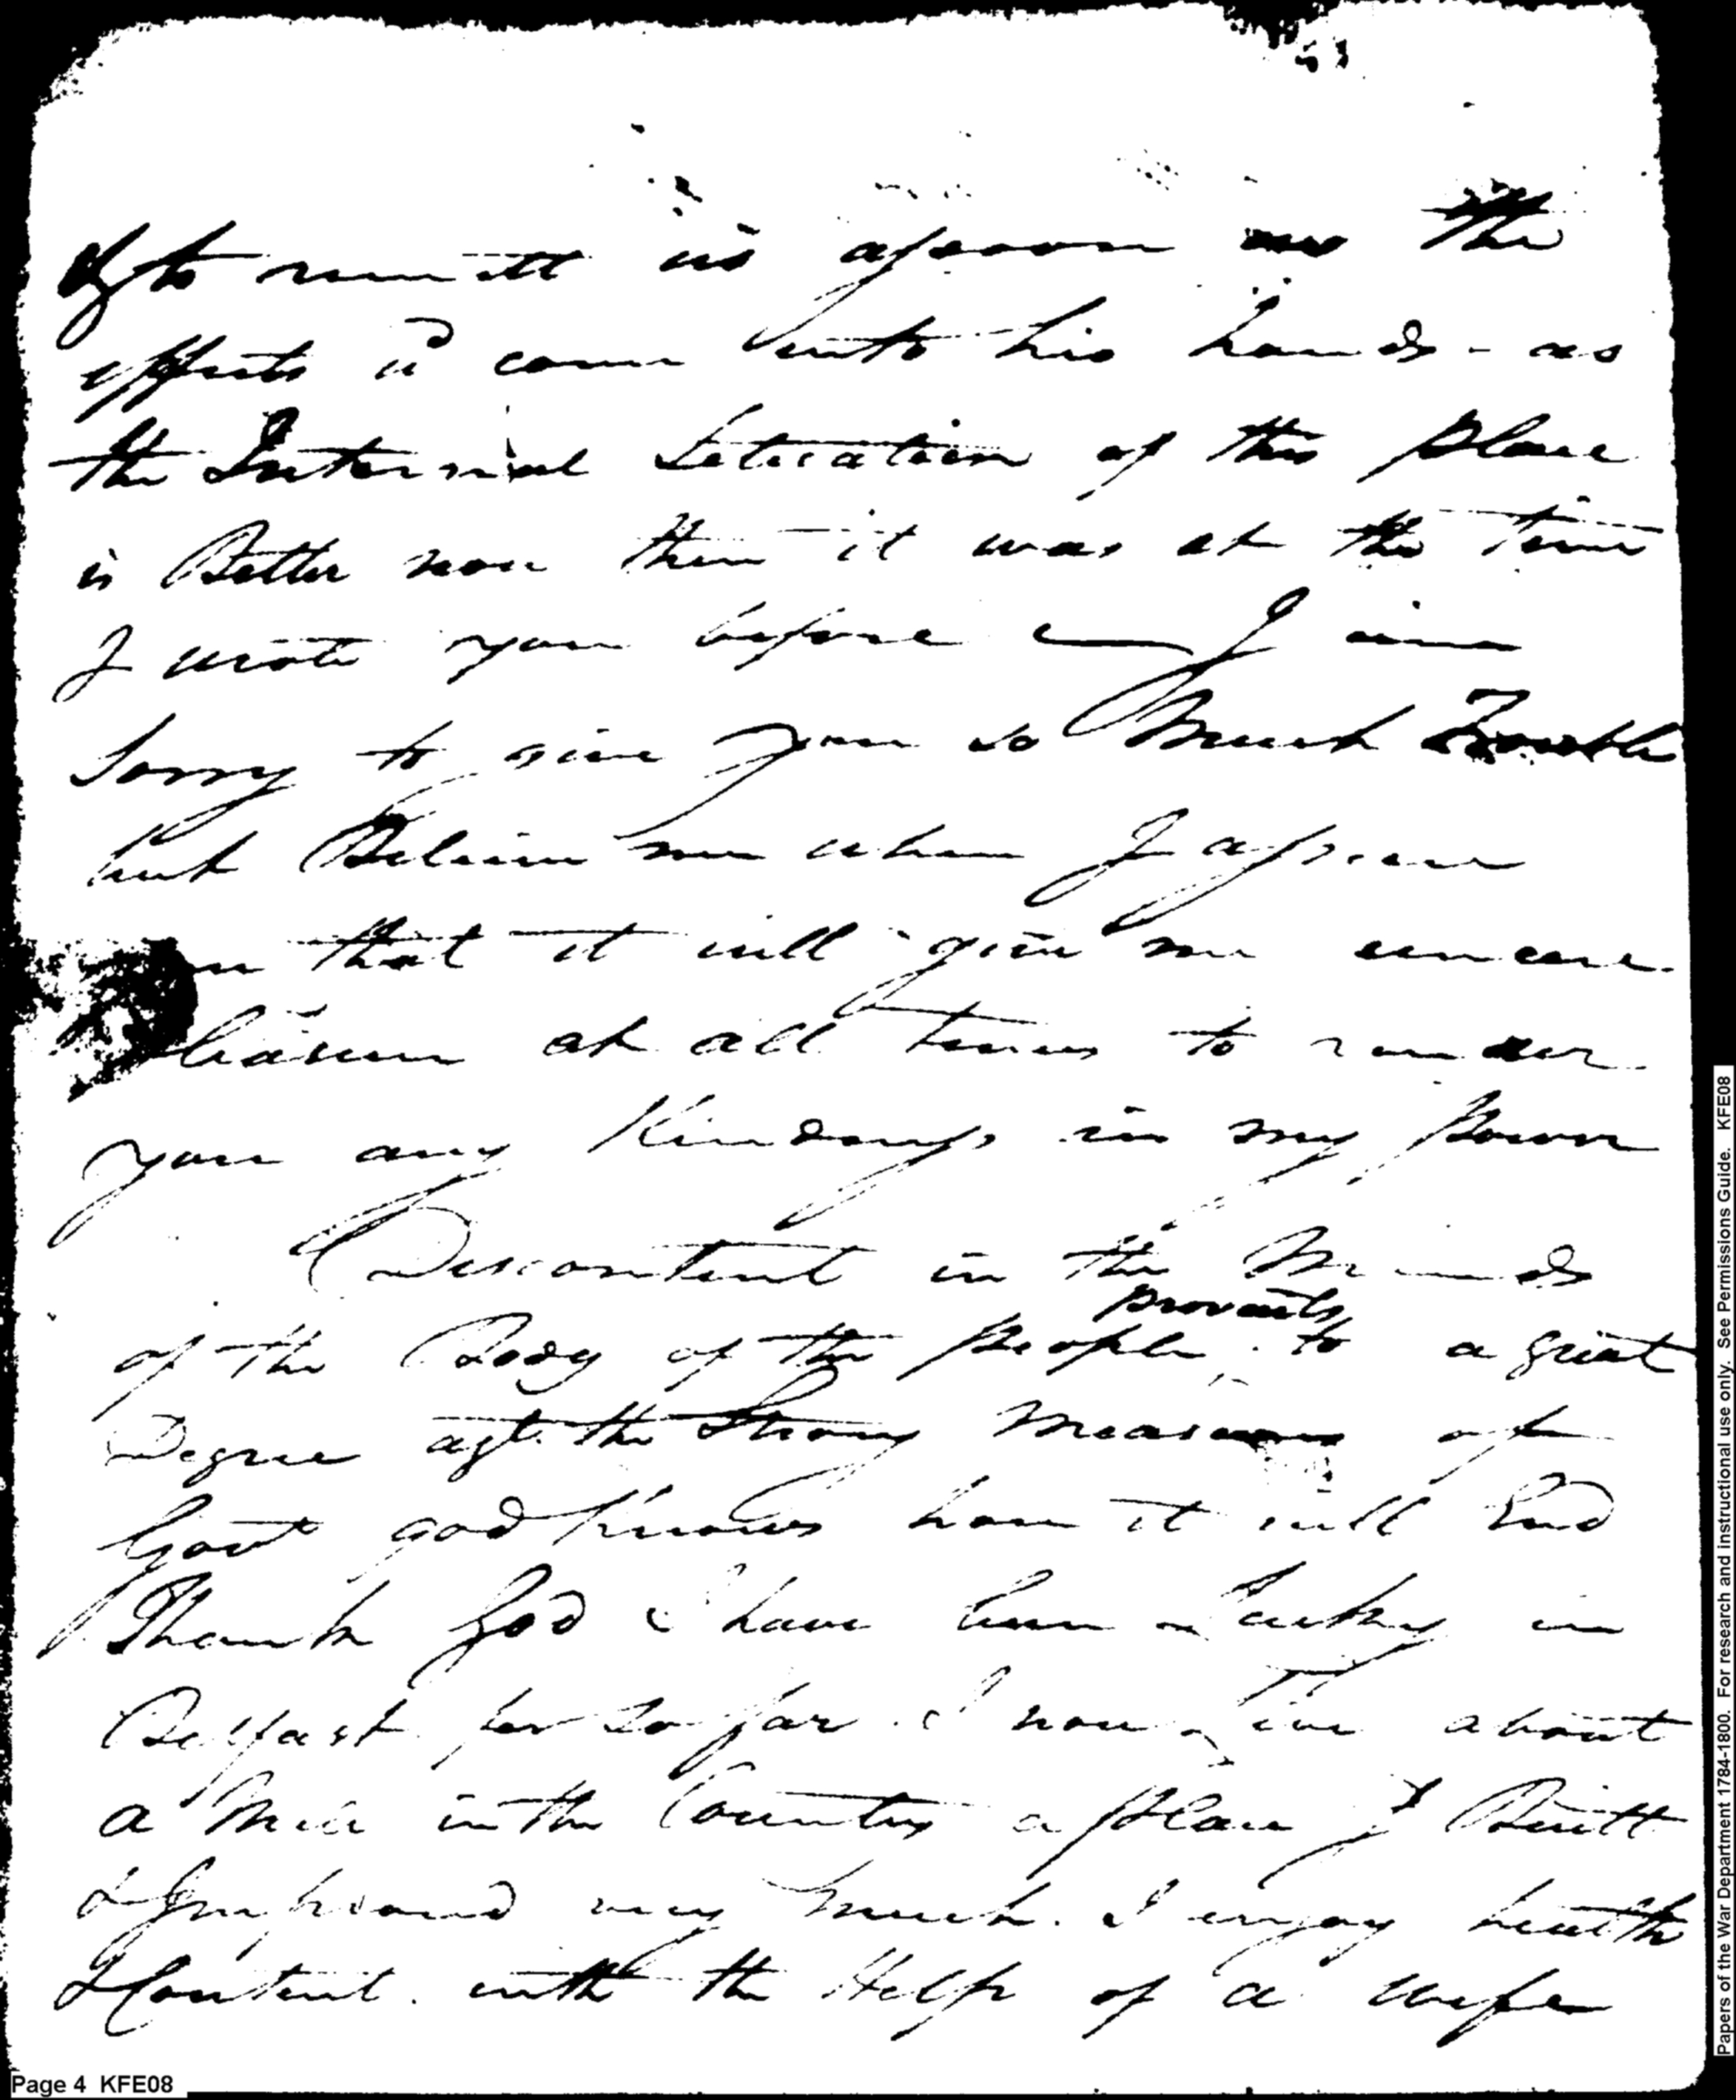 & to remitt us as soon as the
effects is come into his hands - as
the Internal Situation of this place
is Better now then it was at the time
I wrote you before — I am
Sorry to give you so Much Trouble
but Believe me when I assure
you that it will give me sincere
pleasure at all times to render
you any Kindness in my power
Discontent in the Minds
of the Body of the people prevails to a great
Degree agt. the Strong Measures of
Govt god knows how it will End
Thank God I have been Lucky in
Belfast for so far. I now Live about
a Mile in the Country a place I Built
& Improved very much. I enjoy health
& Content with the Help of a wife
Page 4 KFE08
Papers of the War Department 1784-1800. For research and instructional use only. See Permissions Guide. KFE08